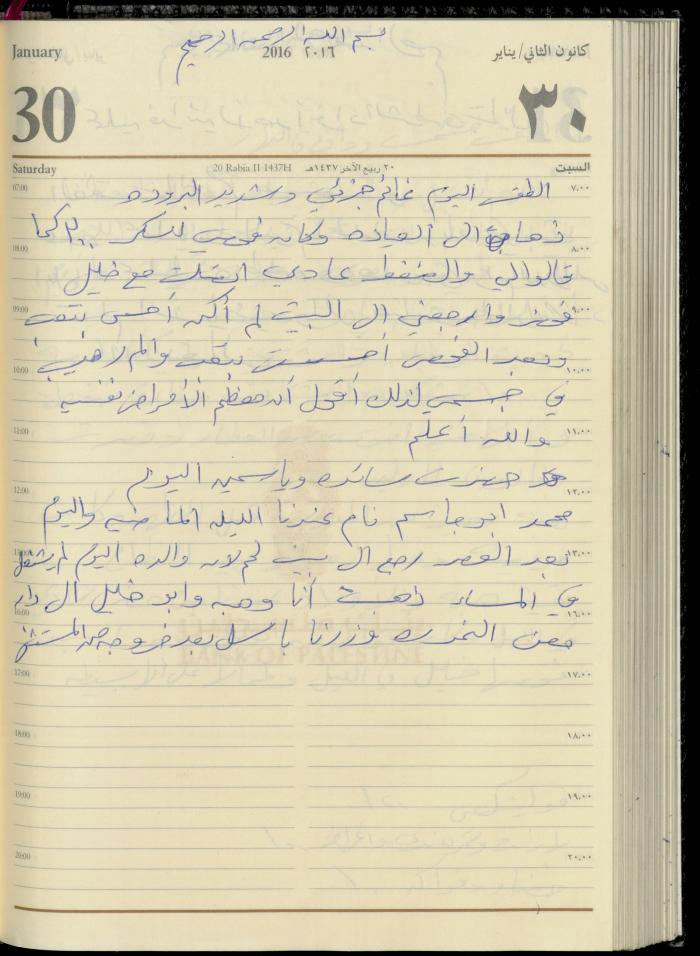 بسم الله الرحمن الرحيم
January 2016 ٢٠١٦ كانون الثاني/يناير
30 ٣٠
Saturday 20 Rabia II 1437H ٢٠ ربيع الآخر ١٤٣٧هـ السبت
07:00 الطقس اليوم غائم جزئي وشديد البروده ٧،٠٠
الى العياده وكان فحص السكر ٢٠٠ كما
08:00 ٨،٠٠
قالوا لي والضغط عادي مع خليل
09:00 الى البيت لم أكن أحس بتعب ٩،٠٠
وبعد الفحص أحسست بتعب والم
10:00 ١٠،٠٠
في جسمي لذلك أقول أن معظم الأمراض نفسيه
11:00 والله أعلم ١١،٠٠
حضرت سائده وياسمين اليوم
12:00 ١٢،٠٠
محمد ابو جاسم نام عندنا الليله الماضيه واليوم
بعد العصر رجع الى بيتهم لان والده اليوم لم يشتغل
١٣،٠٠
في المساء ذهبت أنا وهبه وابو خليل الى دار
16:00 ١٦،٠٠
معن وزرنا باسل بعد خروجه من المستشفى
BANK OF PALESTINE
17:00 ١٧،٠٠
18:00 ١٨،٠٠
19:00 ١٩،٠٠
20:00 ٢٠،٠٠